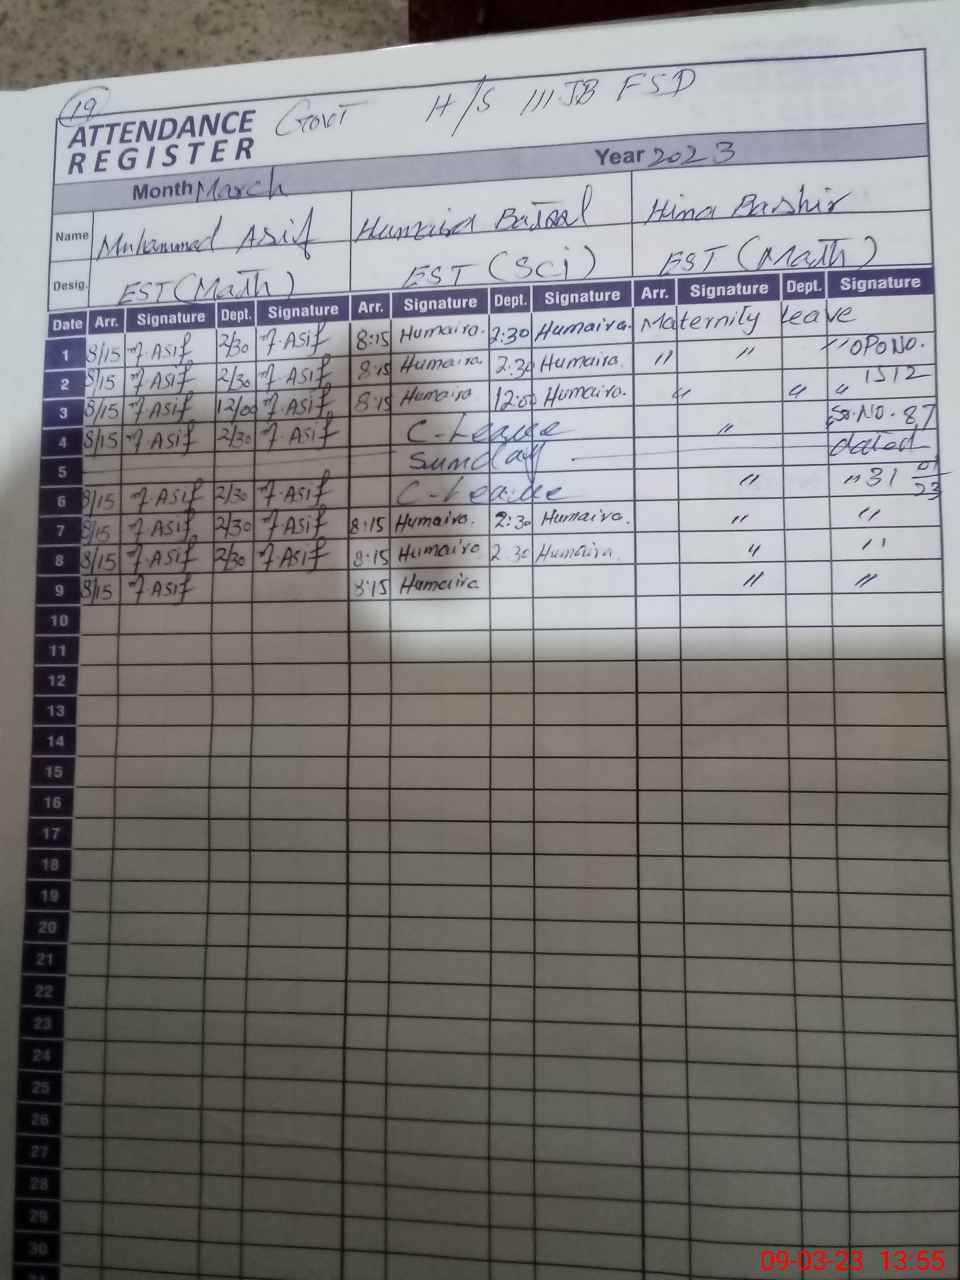 19
ATTENDANCE Govt H/S 111 JB FSD
REGISTER
Month March Year 2023
Name Muhammad Asif Humaira Hina Bashir
Desig. EST (Math) EST (Sci) EST (Math)
Date Arr. Signature Dept. Signature Arr. Signature Dept. Signature Arr. Signature Dept. Signature
1 8/15 M.Asif 2/30 M.Asif 8:15 Humaira. 2:30 Humaira. Maternity leave
2 8/15 M.Asif 2/30 M.Asif 8:15 Humaira. 2:30 Humaira. " " " OPO NO.
3 8/15 M.Asif 12/00 M.Asif 8:15 Humaira 12:00 Humaira. " " " 1512
4 8/15 M.Asif 2/30 M.Asif C-Leave " Sr.NO. 87
5 Sunday dated
6 8/15 M.Asif 2/30 M.Asif C-Leave " " 31 01/23
7 8/15 M.Asif 2/30 M.Asif 8:15 Humaira. 2:30 Humaira. " "
8 8/15 M.Asif 2/30 M.Asif 8:15 Humaira 2:30 Humaira. " "
9 8/15 M.Asif 8:15 Humaira " "
10
11
12
13
14
15
16
17
18
19
20
21
22
23
24
25
26
27
28
29
30
09-03-23 13:55